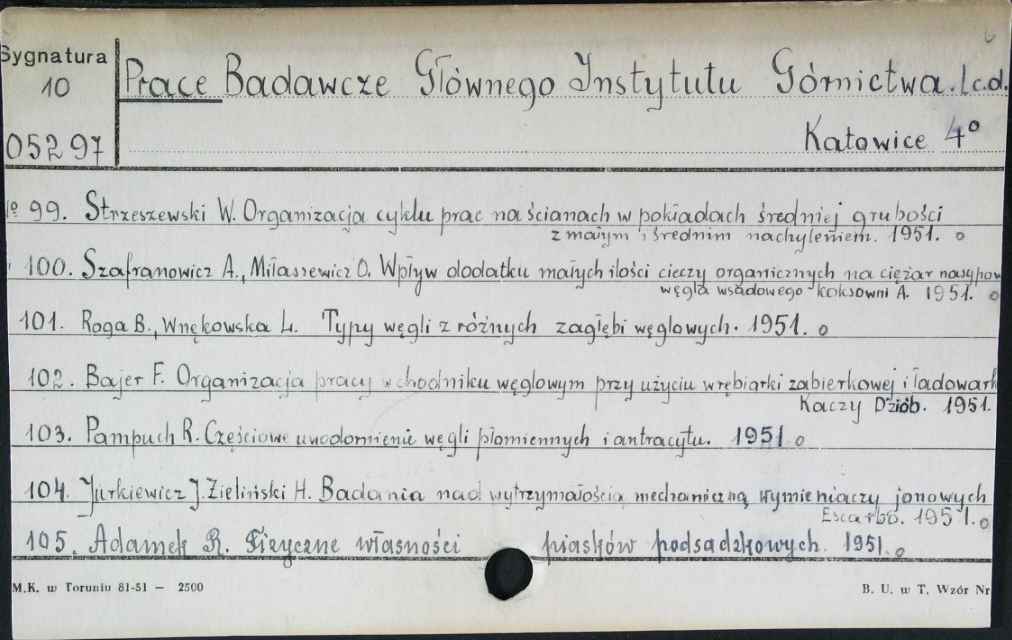 Sygnatura
10
05297
Prace Badawcze Głównego Instytutu Górnictwa. /c.d.
Katowice 4º
№ 99. Strzeszewski W. Organizacja cyklu prac na ścianach w pokładach średniej grubości
z małym i średnim nachyleniem. 1951. o
100. Szafranowicz A., Miłaszewicz O. Wpływ dodatku małych ilości cieczy organicznych na ciężar nasypow
węgla wsadowego koksowni A. 1951. o
101. Roga B., Wnękowska L. Typy węgli z różnych zagłębi węglowych. 1951. o
102. Bajer F. Organizacja pracy w chodniku węglowym przy użyciu wrębiarki zabierkowej i ładowark
Kaczy Dziób. 1951.
103. Pampuch R. Częściowe uwodornienie węgli płomiennych i antracytu. 1951 o
104. Jurkiewicz J. Zieliński H. Badania nad wytrzymałością mechaniczną wymieniaczy jonowych
Escarbo. 1951. o
105. Adamek R. Fizyczne własności piasków podsadzkowych. 1951. o
M.K. w Toruniu 81-51 — 2500
B. U. w T. Wzór Nr